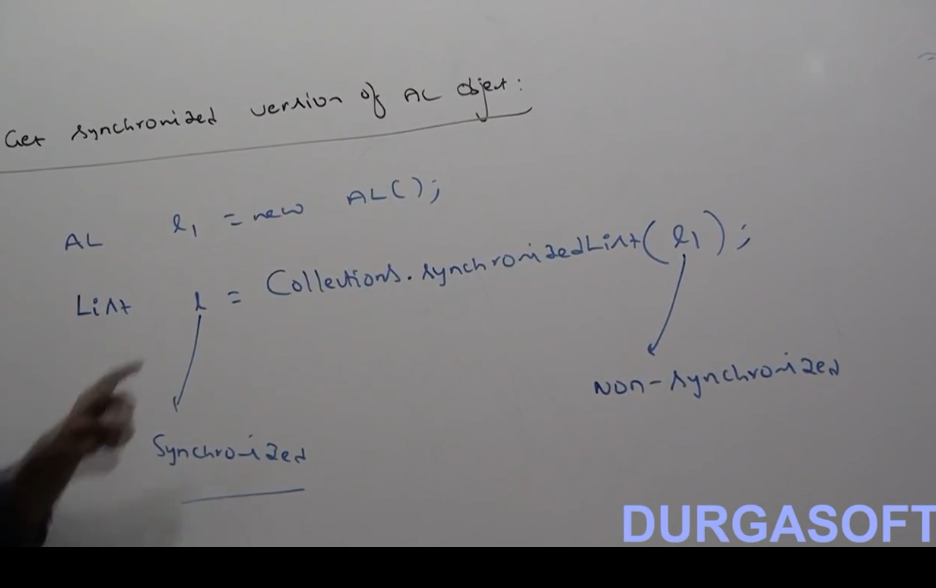 Get synchronized version of AL object:
AL l1 = new AL();
List l = Collections.synchronizedList(l1);
Non-synchronized
Synchronized
DURGASOFT